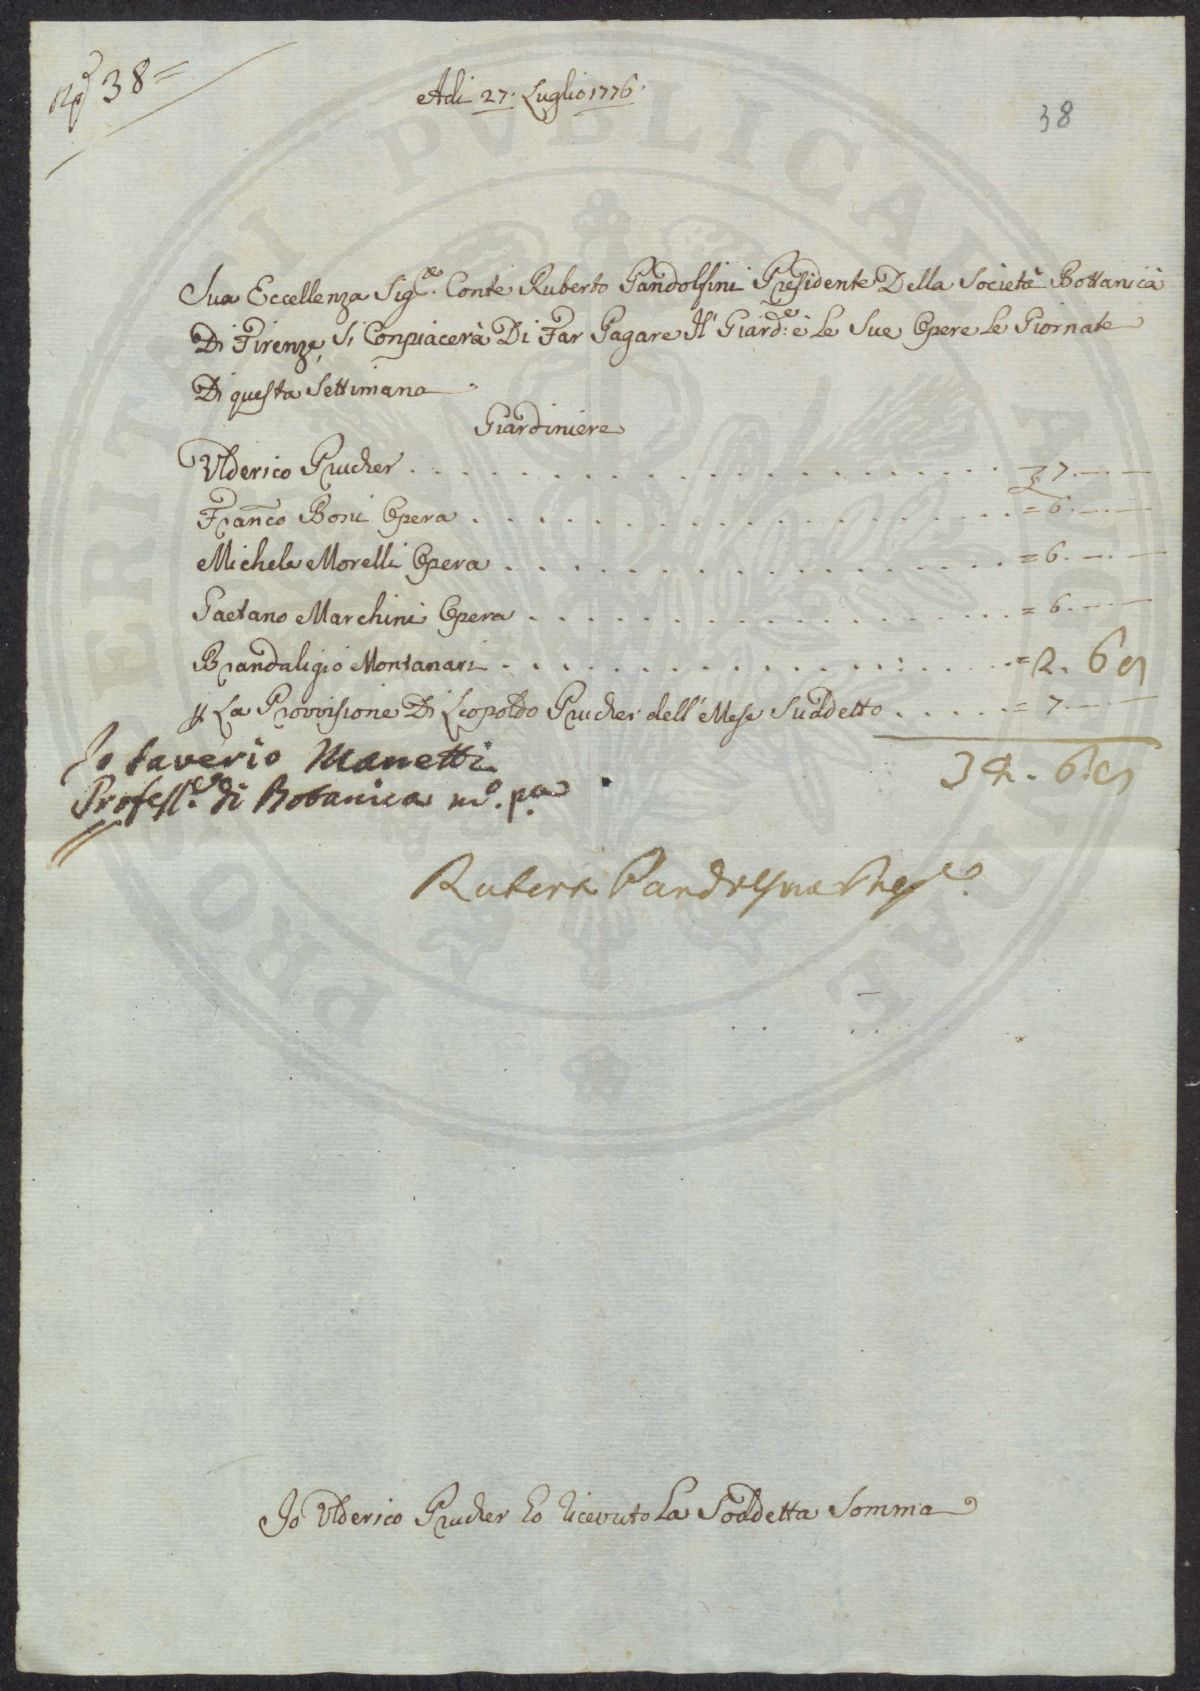 N.º 38 =
Adi 27. Luglio 1776.
38
Sua Eccellenza Sig.re Conte Ruberto Pandolfini Presidente Della Società Bottanica
Di Firenze, Si Conpiacerà Di Far Pagare Il Giard.e è Le Sue Opere Le Giornate
Di questa Settimana
Giardiniere
Ulderico Prucher . . . . . . 7. — —
Franco Boni Opera . . . . . . = 6. — —
Michele Morelli Opera . . . . . . = 6. — —
Gaetano Marchini Opera . . . . . . = 6. — —
Brandaligio Montanari . . . . . . = 2. 6 8
La Provvisione Di Leopoldo Prucher dell' Mese Suddetto . . . . . = 7. — —
34. 6. 8
Io Saverio Manetti
Profess.e di Botanica m.o p.a
Rubert Pandolfini Pres.e
Io Ulderico Prucher ho ricevuto La Soddetta Somma
PRO BENE MERITI PVBLICAE